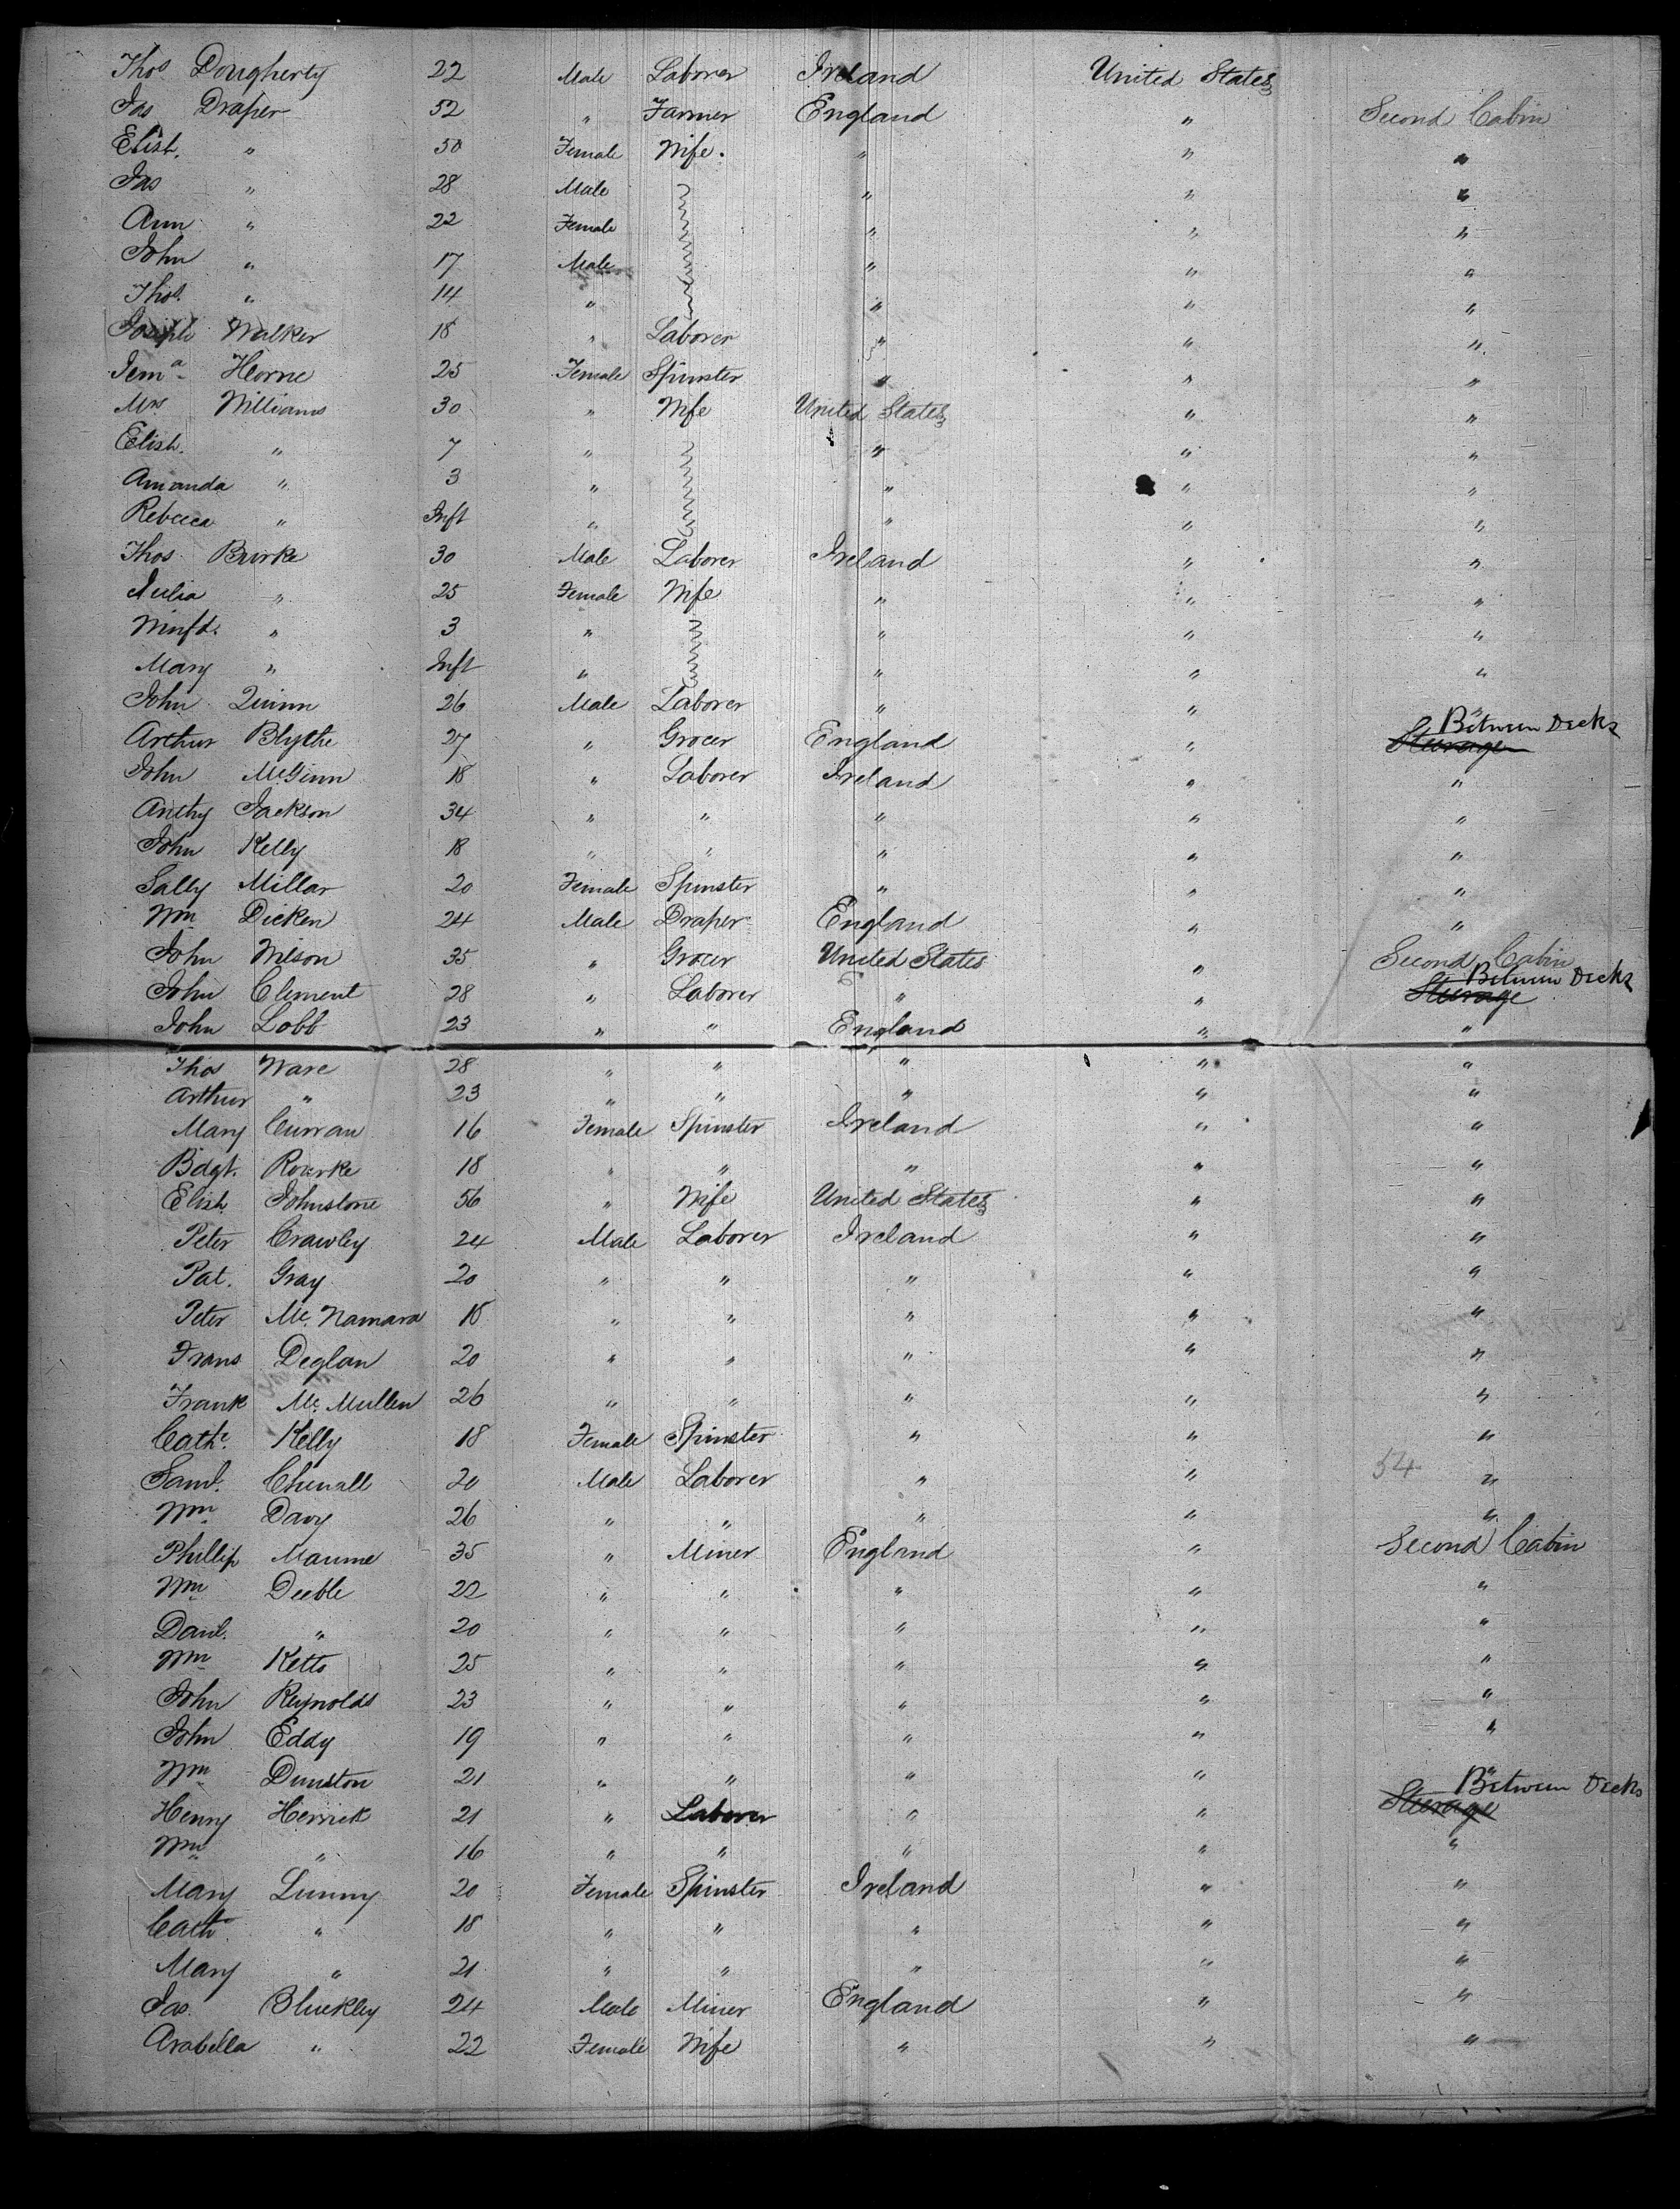 Thos Dougherty 22 Male Laborer Ireland United States
Jas Draper 52 " Farmer England " Second Cabin
Elish. " 50 Female Wife. " " "
Jas " 28 Male " " "
Ann " 22 Female " " "
John " 17 Male " " "
Thos. " 14 " " " "
Joseph Walker 18 " Laborer " " "
Jema Horne 25 Female Spinster " " "
Mrs Williams 30 " Wife United States " "
Elish. " 7 " " " "
Amanda " 3 " " " "
Rebecca " Inft " " " "
Thos Burke 30 Male Laborer Ireland " "
Julia " 25 Female Wife " " "
Winfd. " 3 " " " "
Mary " Inft " " " "
John Quinn 26 Male Laborer " " "
Arthur Blythe 27 " Grocer England " Steerage Between Decks
John McGinn 18 " Laborer Ireland " "
Anthy Jackson 34 " " " " "
John Kelly 18 " " " " "
Sally Millar 20 Female Spinster " " "
Wm Dicken 24 Male Draper England " "
John Wilson 35 " Grocer United States " Second Cabin
John Clement 28 " Laborer " " Steerage Between Decks
John Lobb 23 " " England " "
Thos Ware 28 " " " " "
Arthur " 23 " " " " "
Mary Curran 16 Female Spinster Ireland " "
Bdgt. Rourke 18 " " " " "
Elish Johnstone 56 " Wife United States " "
Peter Crawley 24 Male Laborer Ireland " "
Pat. Gray 20 " " " " "
Peter Mc. Namara 18 " " " " "
Frans Deglan 20 " " " " "
Frank Mc. Mullen 26 " " " " "
Cathe. Kelly 18 Female Spinster " " "
Saml. Chenall 20 Male Laborer " " 34 "
Wm Davy 26 " " " " "
Phillip Maume 35 " Miner England " Second Cabin
Wm Deeble 22 " " " " "
Danl. " 20 " " " " "
Wm Ketto 25 " " " " "
John Reynolds 23 " " " " "
John Eddy 19 " " " " "
Wm Dunston 21 " " " " "
Henry Herrick 21 " Laborer " " Steerage Between Decks
Wm " 16 " " " " "
Mary Lunny 20 Female Spinster Ireland " "
Cath " 18 " " " " "
Mary " 21 " " " " "
Jas. Bluckley 24 Male Miner England " "
Arabella " 22 Female Wife " " "